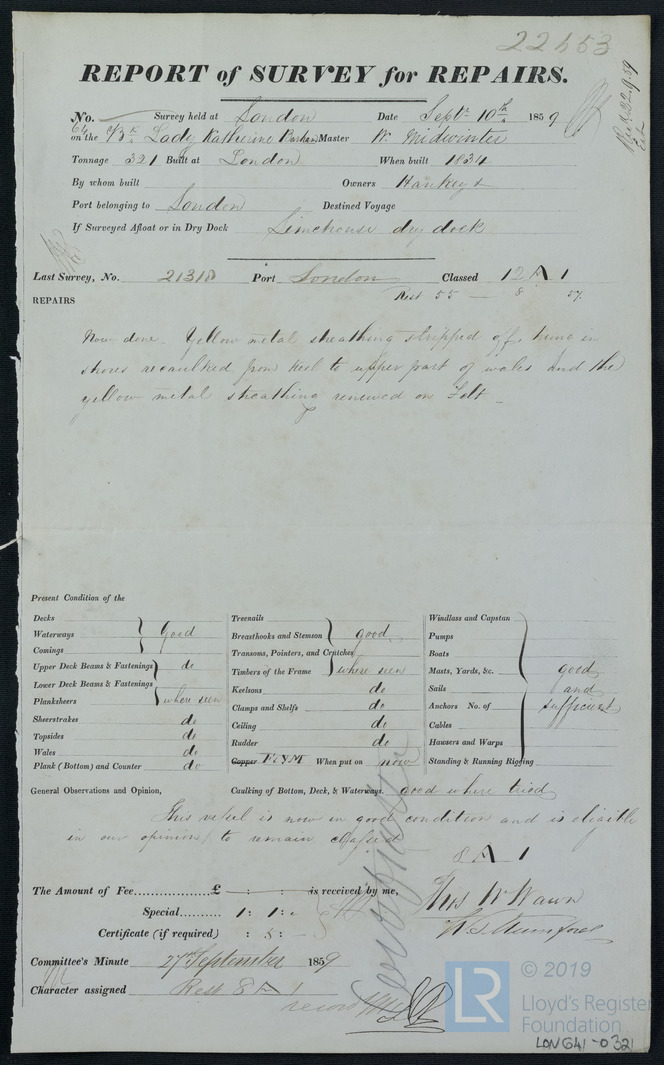 22653
REPORT of SURVEY for REPAIRS.
Rec'd 22.9.59
No. Survey held at London Date Septr 10th 1859
64 on the Lady Katherine Barham Master W. Midwinter
Tonnage 321 Built at London When built 1834
By whom built Owners Hankey &
Port belonging to London Destined Voyage
If Surveyed Afloat or in Dry Dock Limehouse dry dock
Last Survey, No. 21318 Port London Classed 12 A 1
REPAIRS Rest 55 — 8 57.
Now done. Yellow metal sheathing stripped off, hung in
shores recaulked from keel to upper part of wales and the
yellow metal sheathing renewed on Felt
Present Condition of the
Decks
Waterways good
Comings
Upper Deck Beams & Fastenings do
Lower Deck Beams & Fastenings
Planksheers where seen
Sheerstrakes do
Topsides do
Wales do
Plank (Bottom) and Counter do
Treenails
Breasthooks and Stemson good
Transoms, Pointers, and Crutches
Timbers of the Frame where seen
Keelsons do
Clamps and Shelfs do
Ceiling do
Rudder do
Copper F&YM When put on now
Windlass and Capstan
Pumps
Boats
Masts, Yards, &c. good
Sails and
Anchors No. of sufficient
Cables
Hawsers and Warps
Standing & Running Rigging
General Observations and Opinion, Caulking of Bottom, Deck, & Waterways. good where tried
This vessel is now in good condition and is eligible
in our opinion to remain classed
8 A 1
The Amount of Fee £ - : - : - is received by me,
Special 1 : 1 : -
Certificate (if required) : 5 : -
Thos W Wawn
W. S. Mumford
Committee's Minute 27th September 1859
Character assigned Rest 8 A 1
record
LR
© 2019
Lloyd's Register
Foundation
LON641-0321